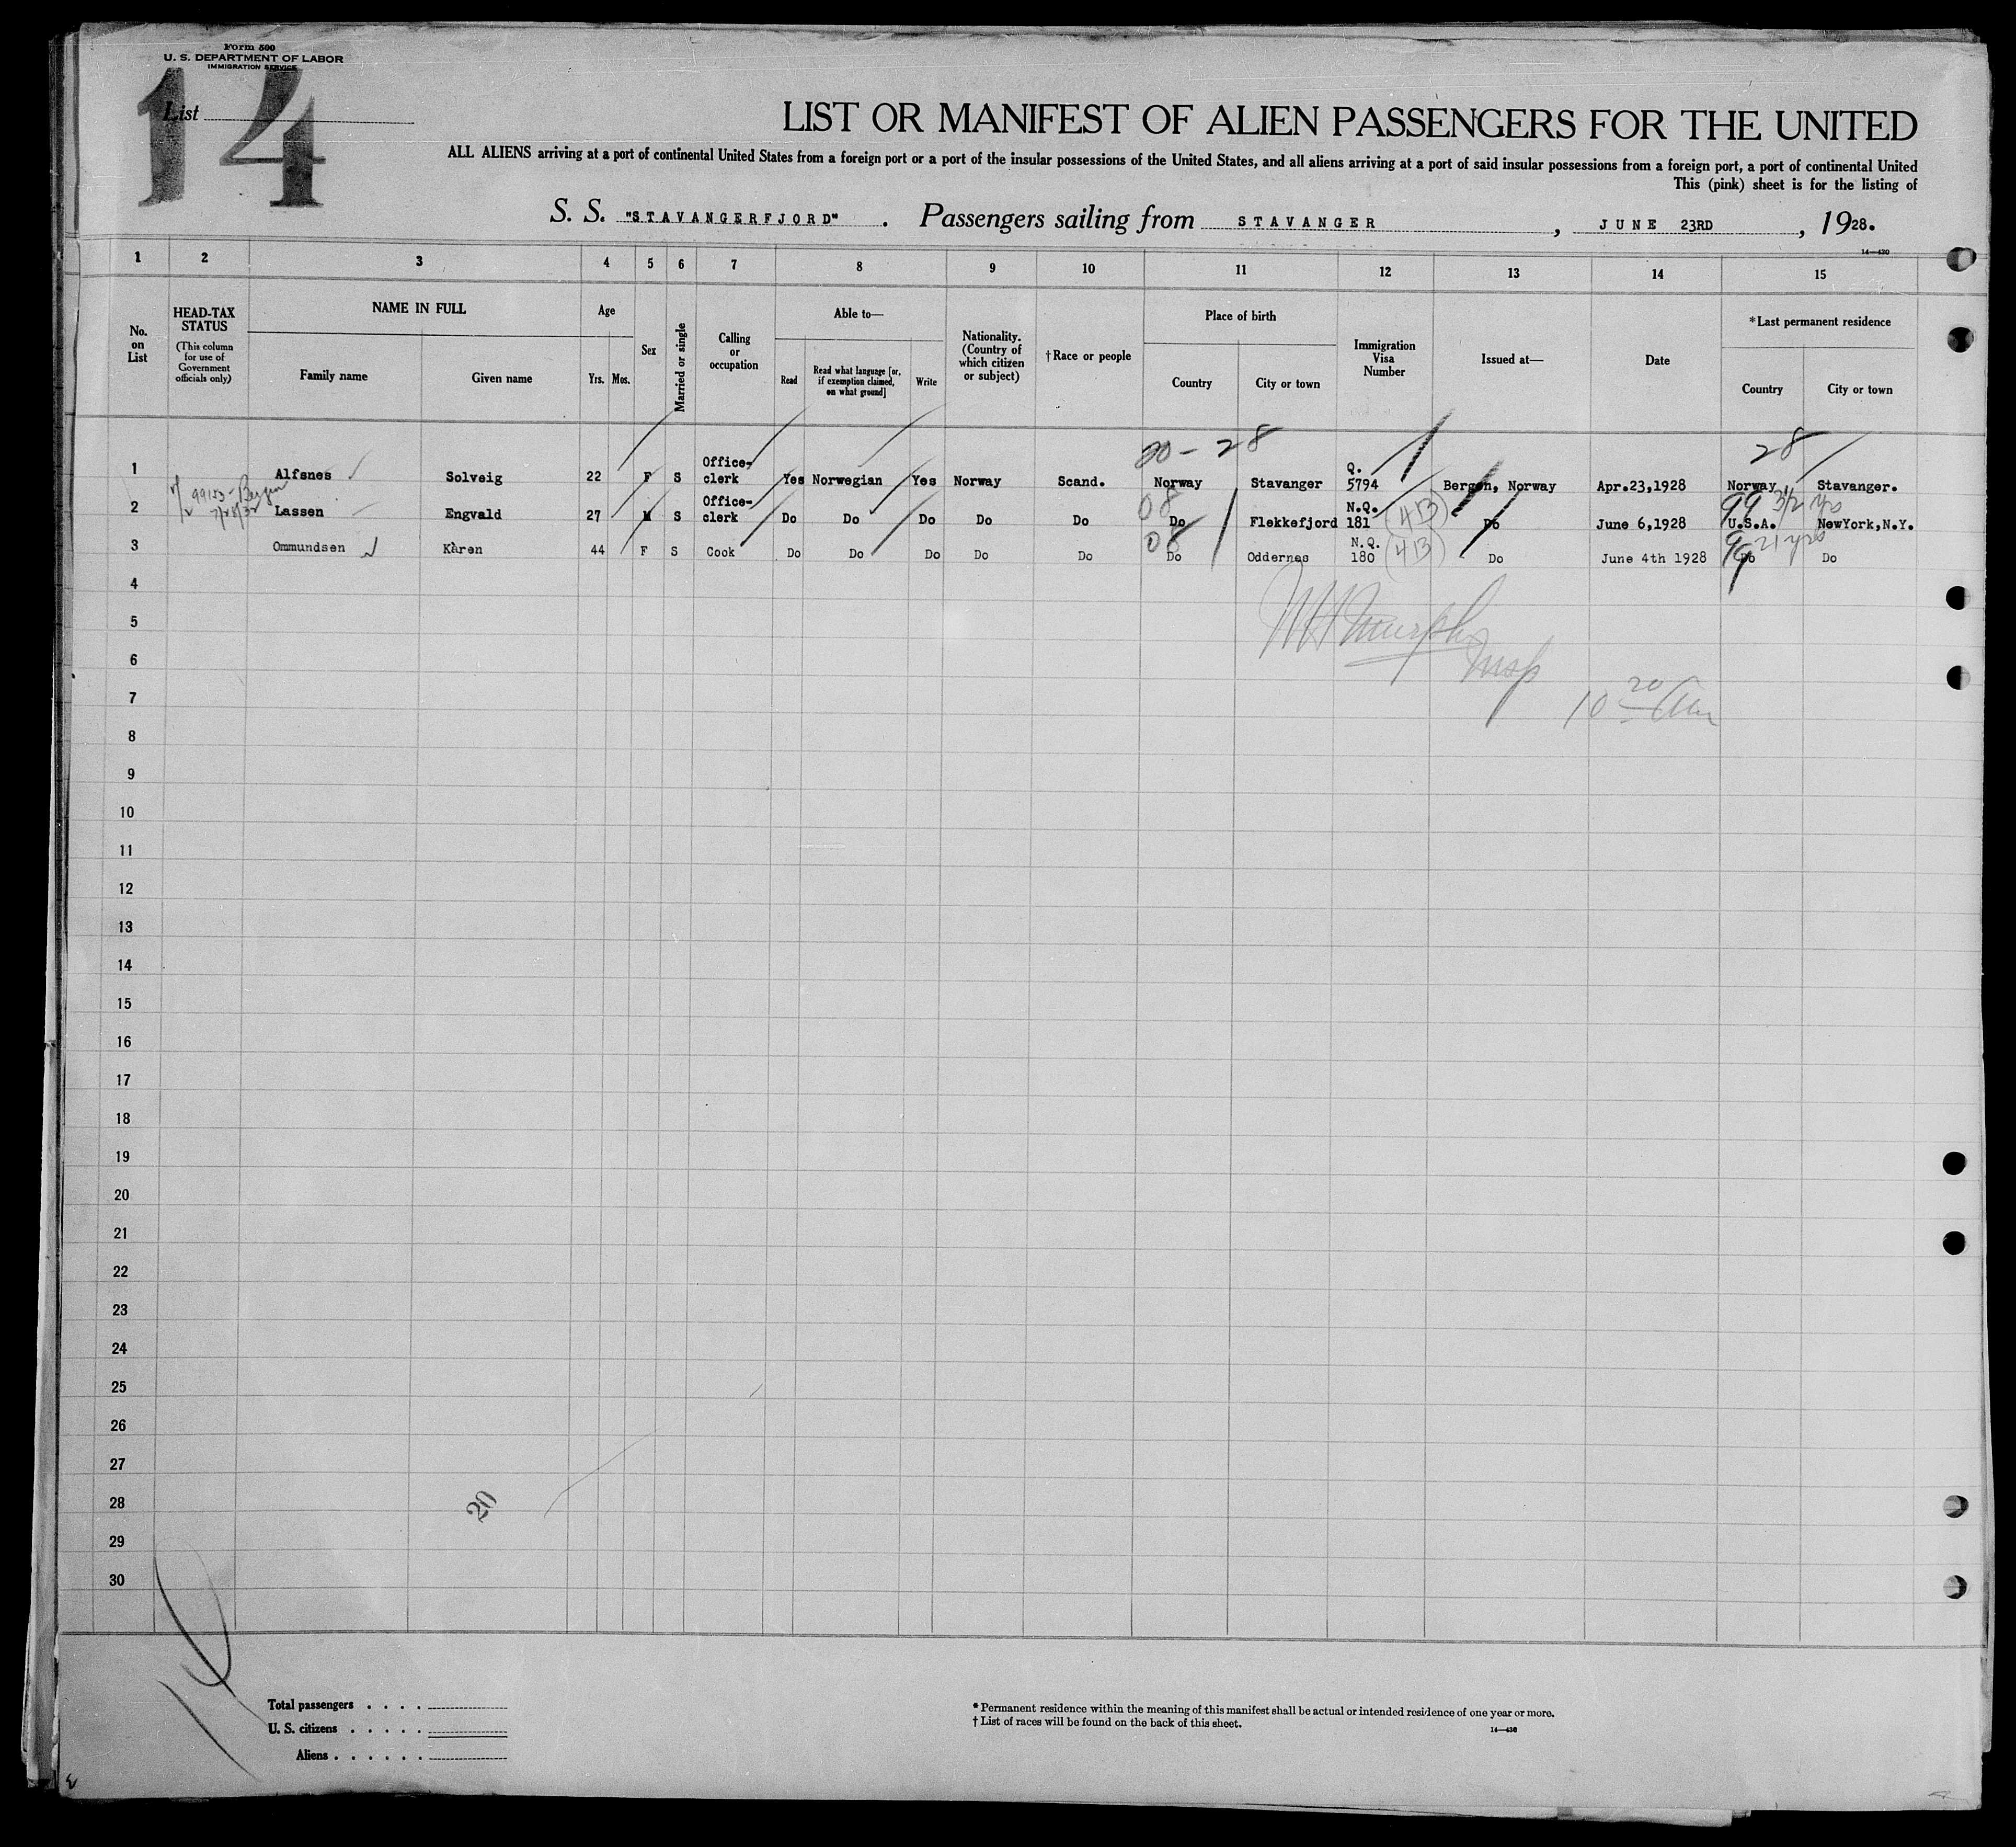 Form 500
U. S. DEPARTMENT OF LABOR
IMMIGRATION SERVICE
List
14
LIST OR MANIFEST OF ALIEN PASSENGERS FOR THE UNITED
ALL ALIENS arriving at a port of continental United States from a foreign port or a port of the insular possessions of the United States, and all aliens arriving at a port of said insular possessions from a foreign port, a port of continental United
This (pink) sheet is for the listing of
S. S. "STAVANGERFJORD". Passengers sailing from STAVANGER, JUNE 23RD, 1928.
14—430
1 2 3 4 5 6 7 8 9 10 11 12 13 14 15
No. on List
HEAD-TAX STATUS
(This column for use of Government officials only)
NAME IN FULL
Family name
Given name
Age
Yrs. Mos.
Sex
Married or single
Calling or occupation
Able to—
Read
Read what language [or, if exemption claimed, on what ground]
Write
Nationality. (Country of which citizen or subject)
†Race or people
Place of birth
Country
City or town
Immigration Visa Number
Issued at—
Date
*Last permanent residence
Country
City or town
20-28
28
1 Alfsnes Solveig 22 F S Office-clerk Yes Norwegian Yes Norway Scand. Norway Stavanger Q. 5794 Bergen, Norway Apr.23,1928 Norway Stavanger.
99153-Bergen
08
99 3½ yrs
2 Lassen Engvald 27 M S Office-clerk Do Do Do Do Do Do Flekkefjord N.Q. 181 (4B) Do June 6,1928 U.S.A. NewYork,N.Y.
08
99 21 yrs
3 Ommundsen Karen 44 F S Cook Do Do Do Do Do Do Oddernes N.Q. 180 (4B) Do June 4th 1928 Do Do
4
5
Murphy
6
Insp
7
10 20 am
8
9
10
11
12
13
14
15
16
17
18
19
20
21
22
23
24
25
26
27
28
20
29
30
Total passengers . . . .
U. S. citizens . . . . .
Aliens . . . . . .
* Permanent residence within the meaning of this manifest shall be actual or intended residence of one year or more.
† List of races will be found on the back of this sheet.
14—430